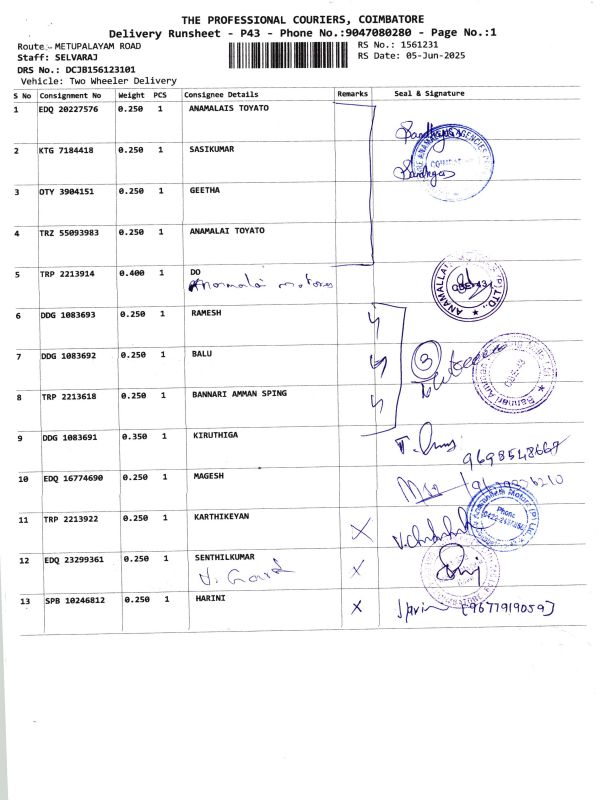 THE PROFESSIONAL COURIERS, COIMBATORE
Delivery Runsheet - P43 - Phone No.:9047080280 - Page No.:1
Route:- METUPALAYAM ROAD
RS No.: 1561231
Staff: SELVARAJ
RS Date: 05-Jun-2025
DRS No.: DCJB156123101
Vehicle: Two Wheeler Delivery
S No Consignment No Weight PCS Consignee Details Remarks Seal & Signature
1 EDQ 20227576 0.250 1 ANAMALAIS TOYATO
2 KTG 7184418 0.250 1 SASIKUMAR
3 OTY 3904151 0.250 1 GEETHA
4 TRZ 55093983 0.250 1 ANAMALAI TOYATO
5 TRP 2213914 0.400 1 DO
Anamalai motors
6 DDG 1083693 0.250 1 RAMESH
7 DDG 1083692 0.250 1 BALU
3
8 TRP 2213618 0.250 1 BANNARI AMMAN SPING
9 DDG 1083691 0.350 1 KIRUTHIGA
9698548667
10 EDQ 16774690 0.250 1 MAGESH
11 TRP 2213922 0.250 1 KARTHIKEYAN X
Phone
12 EDQ 23299361 0.250 1 SENTHILKUMAR X
13 SPB 10246812 0.250 1 HARINI X [9677919059]